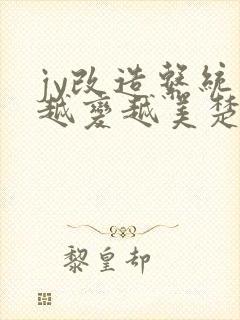 jy改造系統
越變越美楚
黎皇却